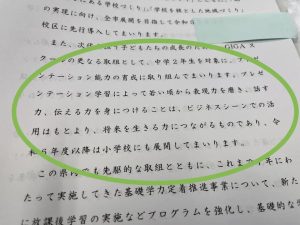 にある学校づくり」「学校を核とした地域づくり」
の実現に向け、全市展開を目指して令和
校区に先行導入してまいります。
また、次代を担う子どもたちの成長のため、GIGAス
クールの更なる取組として、中学2年生を対象に、プレゼ
ンテーション能力の育成に取り組んでまいります。プレゼ
ンテーション学習によって若い頃から表現力を磨き、話す
力、伝える力を身につけることは、ビジネスシーンでの活
用はもとより、将来を生きる力につながるものであり、令
和6年度以降は小学校にも展開してまいります。
この県内でも先駆的な取組とともに、これまで7年にわ
たって実施してきた基礎学力定着推進事業について、新た
に放課後学習の実施などプログラムを強化し、基礎的な